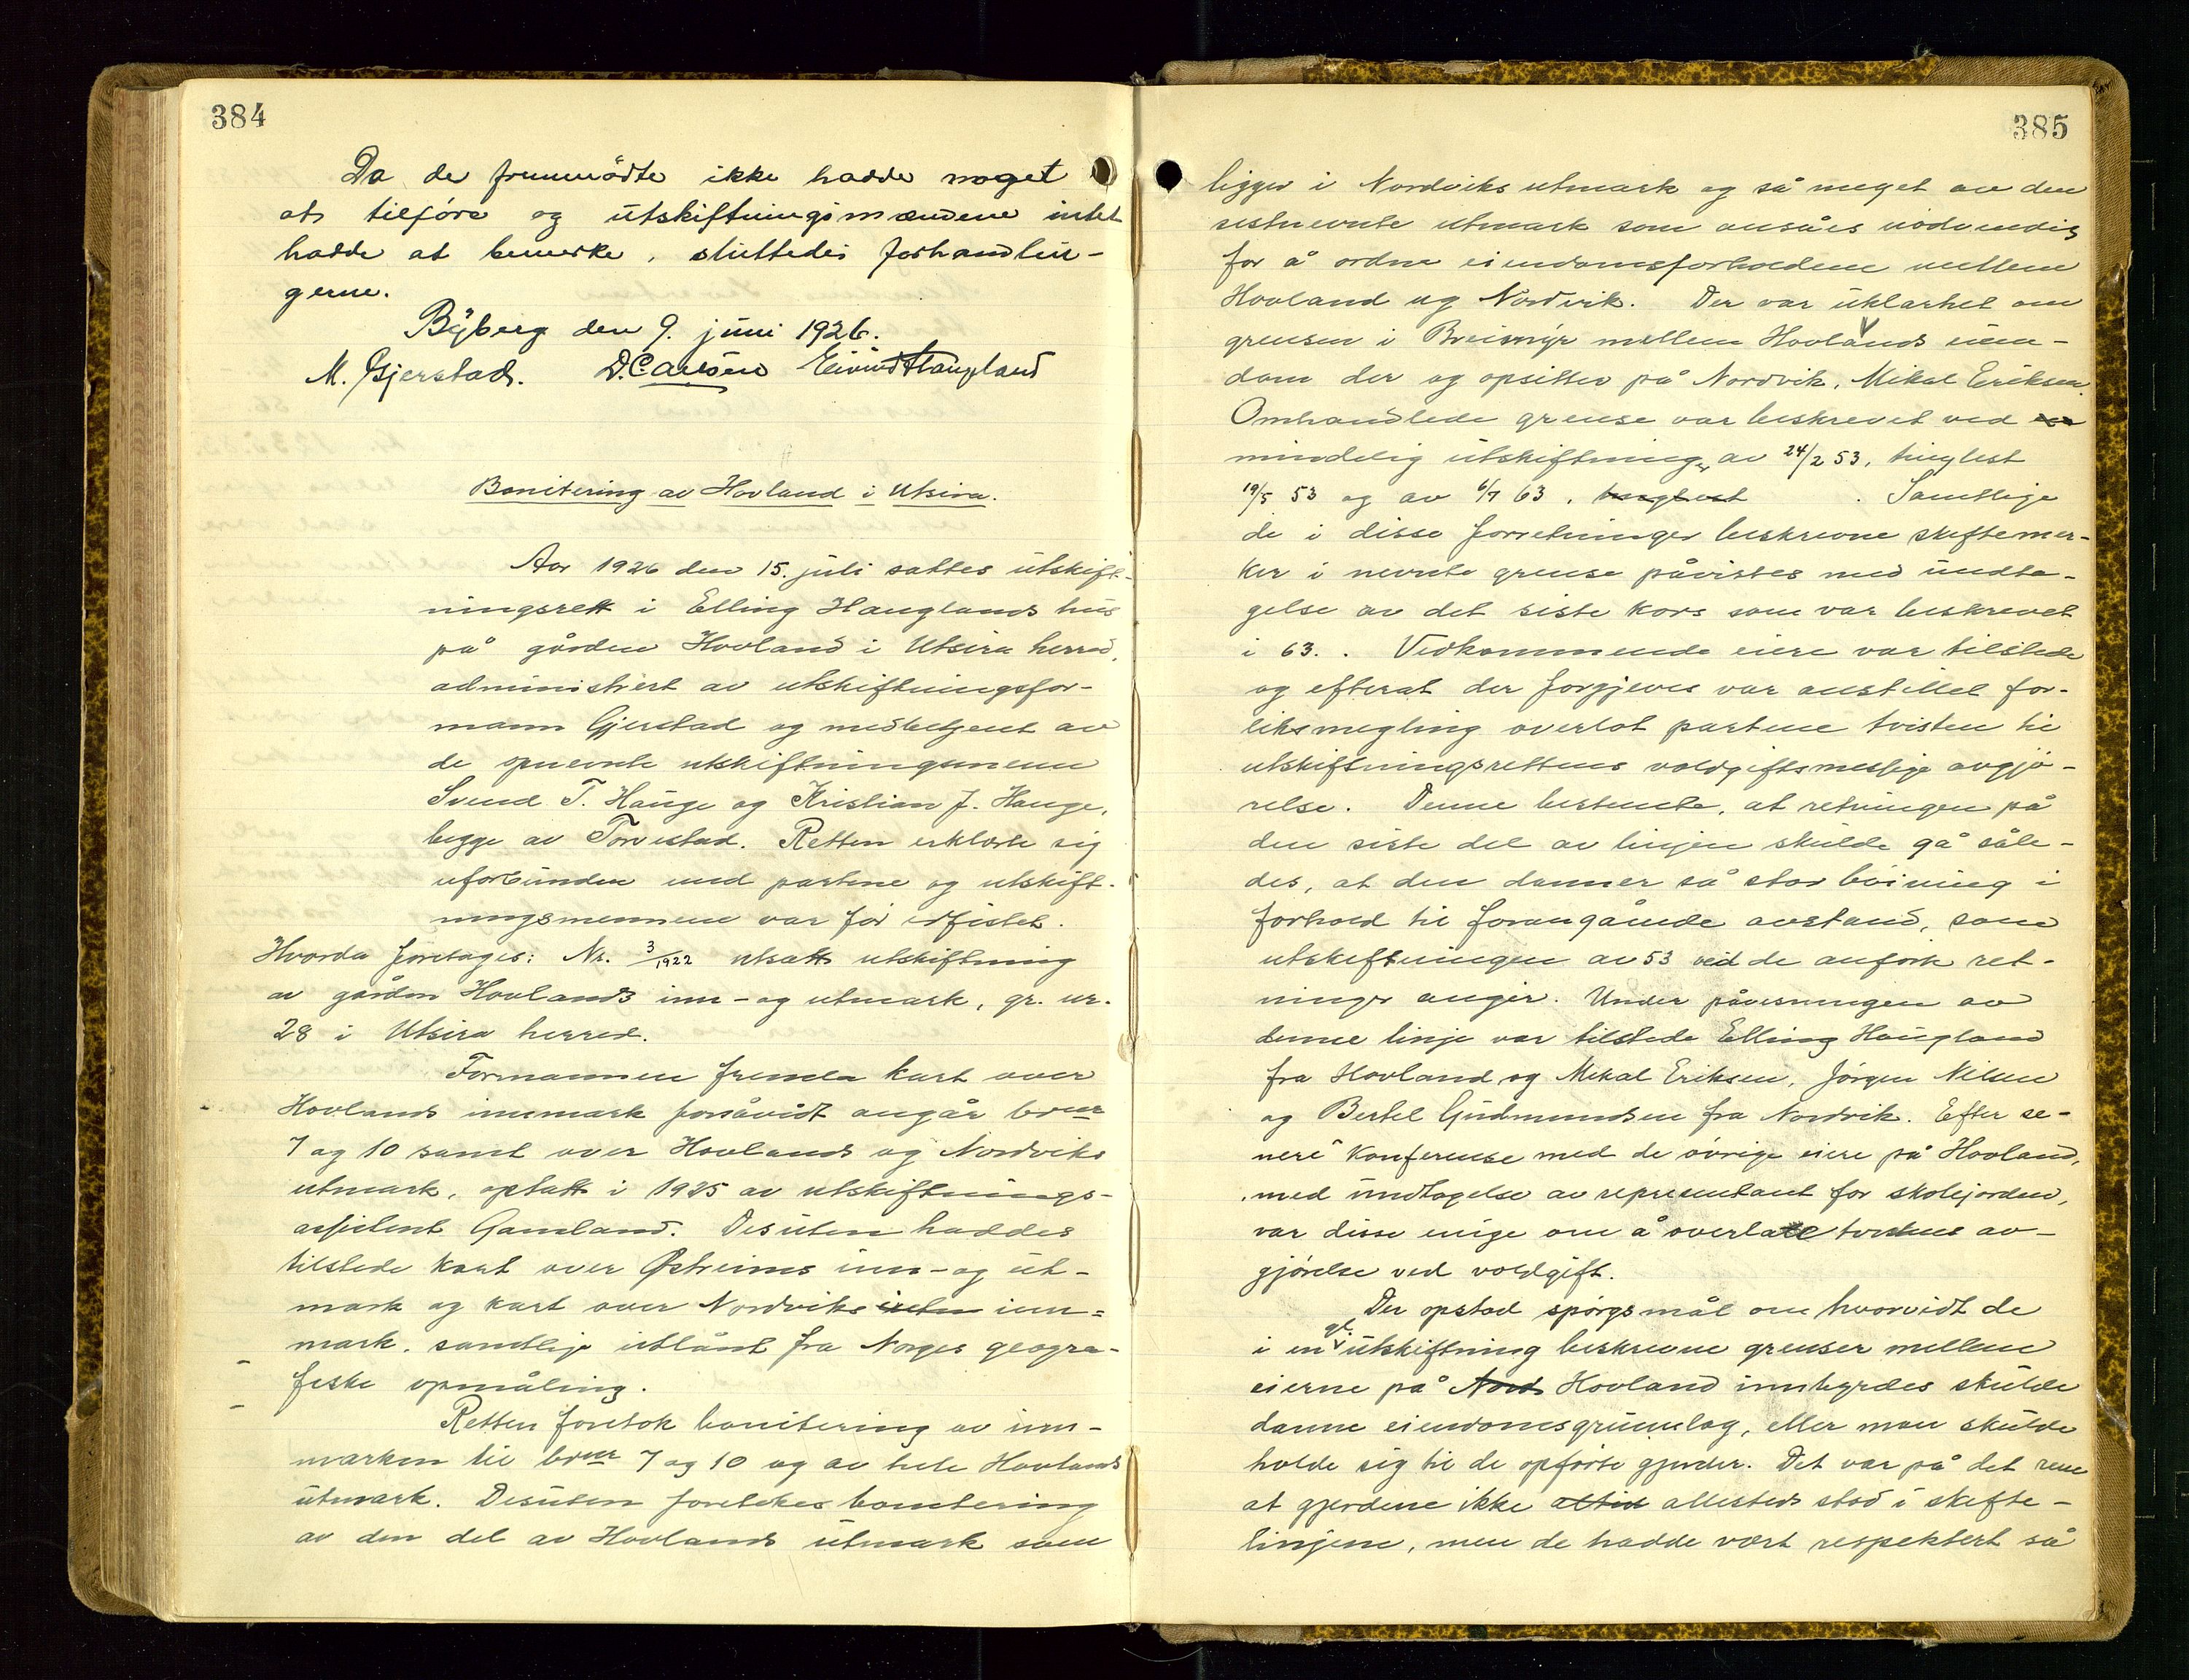 384
Da de fremmødte ikke hadde noget
at tilføre og utskiftningsmændene intet
hadde at bemerke, sluttedes forhandlin-
gerne.
Byberg den 9. juni 1926.
M. Gjerstad. D. Carlsen Eivind Haugland
Bonitering av Hovland i Utsira.
Aar 1926 den 15. juli sattes utskift-
ningsrett i Elling Hauglands hus
på gården Hovland i Utsira herred,
administrert av utskiftningsfor-
mann Gjerstad og medbetjent av
de opnevnte utskiftningsmenn
Svend T. Hauge og Kristian J. Hauge,
begge av Torvestad. Retten erklærte sig
uforbunden med partene og utskift-
ningsmennene var før edfistet.
Hvorda foretages: Nr. 3/1922 utsatt utskiftning
av gården Hovlands inn- og utmark, gr. nr.
28 i Utsira herred.
Formannen fremla kart over
Hovlands innmark forsåvidt angår brnr
7 og 10 samt over Hovlands og Nordviks
utmark, optatt i 1925 av utskiftnings-
assistent Gamland. Desuten haddes
tilstede kart over Østreims inn- og ut-
mark og kart over Nordviks inn-
mark, samtlige utlånt fra Norges geogra-
fiske opmåling.
Retten foretok bonitering av inn-
marken til brnr 7 og 10 og av hele Hovlands
utmark. Desuten foretokes bonitering
av den del av Hovlands utmark som
385
ligger i Nordviks utmark og så meget av den
sistnevnte utmark som ansåes nødvendig
for å ordne eiendomsforholdene mellem
Hovland og Nordvik. Der var uklarhet om
grensen i Breimyr mellem Hovlands eien-
dom der og opsitter på Nordvik, Mikal Eriksen.
Omhandlede grense var beskrevet ved
mindelig utskiftning av 24/2 53, tinglest
19/5 53 og av 6/7 63, tinglest . Samtlige
de i disse forretninger beskrevne skiftemer-
ker i nevnte grense påvistes med undta-
gelse av det siste kors som var beskrevet
i 63. Vedkommende eiere var tilstede
og efterat der forgjeves var anstillet for-
liksmegling overlot partene tvisten til
utskiftningsrettens voldgiftsmessige avgjø-
relse. Denne bestemte, at retningen på
den siste del av linjen skulde gå såle-
des, at den danner så stor bøining i
forhold til forangående avstand, som
utskiftningen av 53 ved de anførte ret-
ninger angir. Under påvisningen av
denne linje var tilstede Elling Haugland
fra Hovland og Mikal Eriksen, Jørgen Nilsen
og Bertel Gudmundsen fra Nordvik. Efter se-
nere konferense med de øvrige eiere på Hovland,
med undtagelse av representant for skolejorden,
var disse enige om å overlate tvistens av-
gjørelse ved voldgift.
Der opstod spørgsmål om hvorvidt de
i en gl. utskiftning beskrevne grenser mellem
eierne på Nord Hovland innbyrdes skulde
danne eiendomsgrunnlag, eller man skulde
holde sig til de opførte gjerder. Det var på det rene
at gjerdene ikke altid allesteds stod i skifte-
linjene, men de hadde vært respektert så